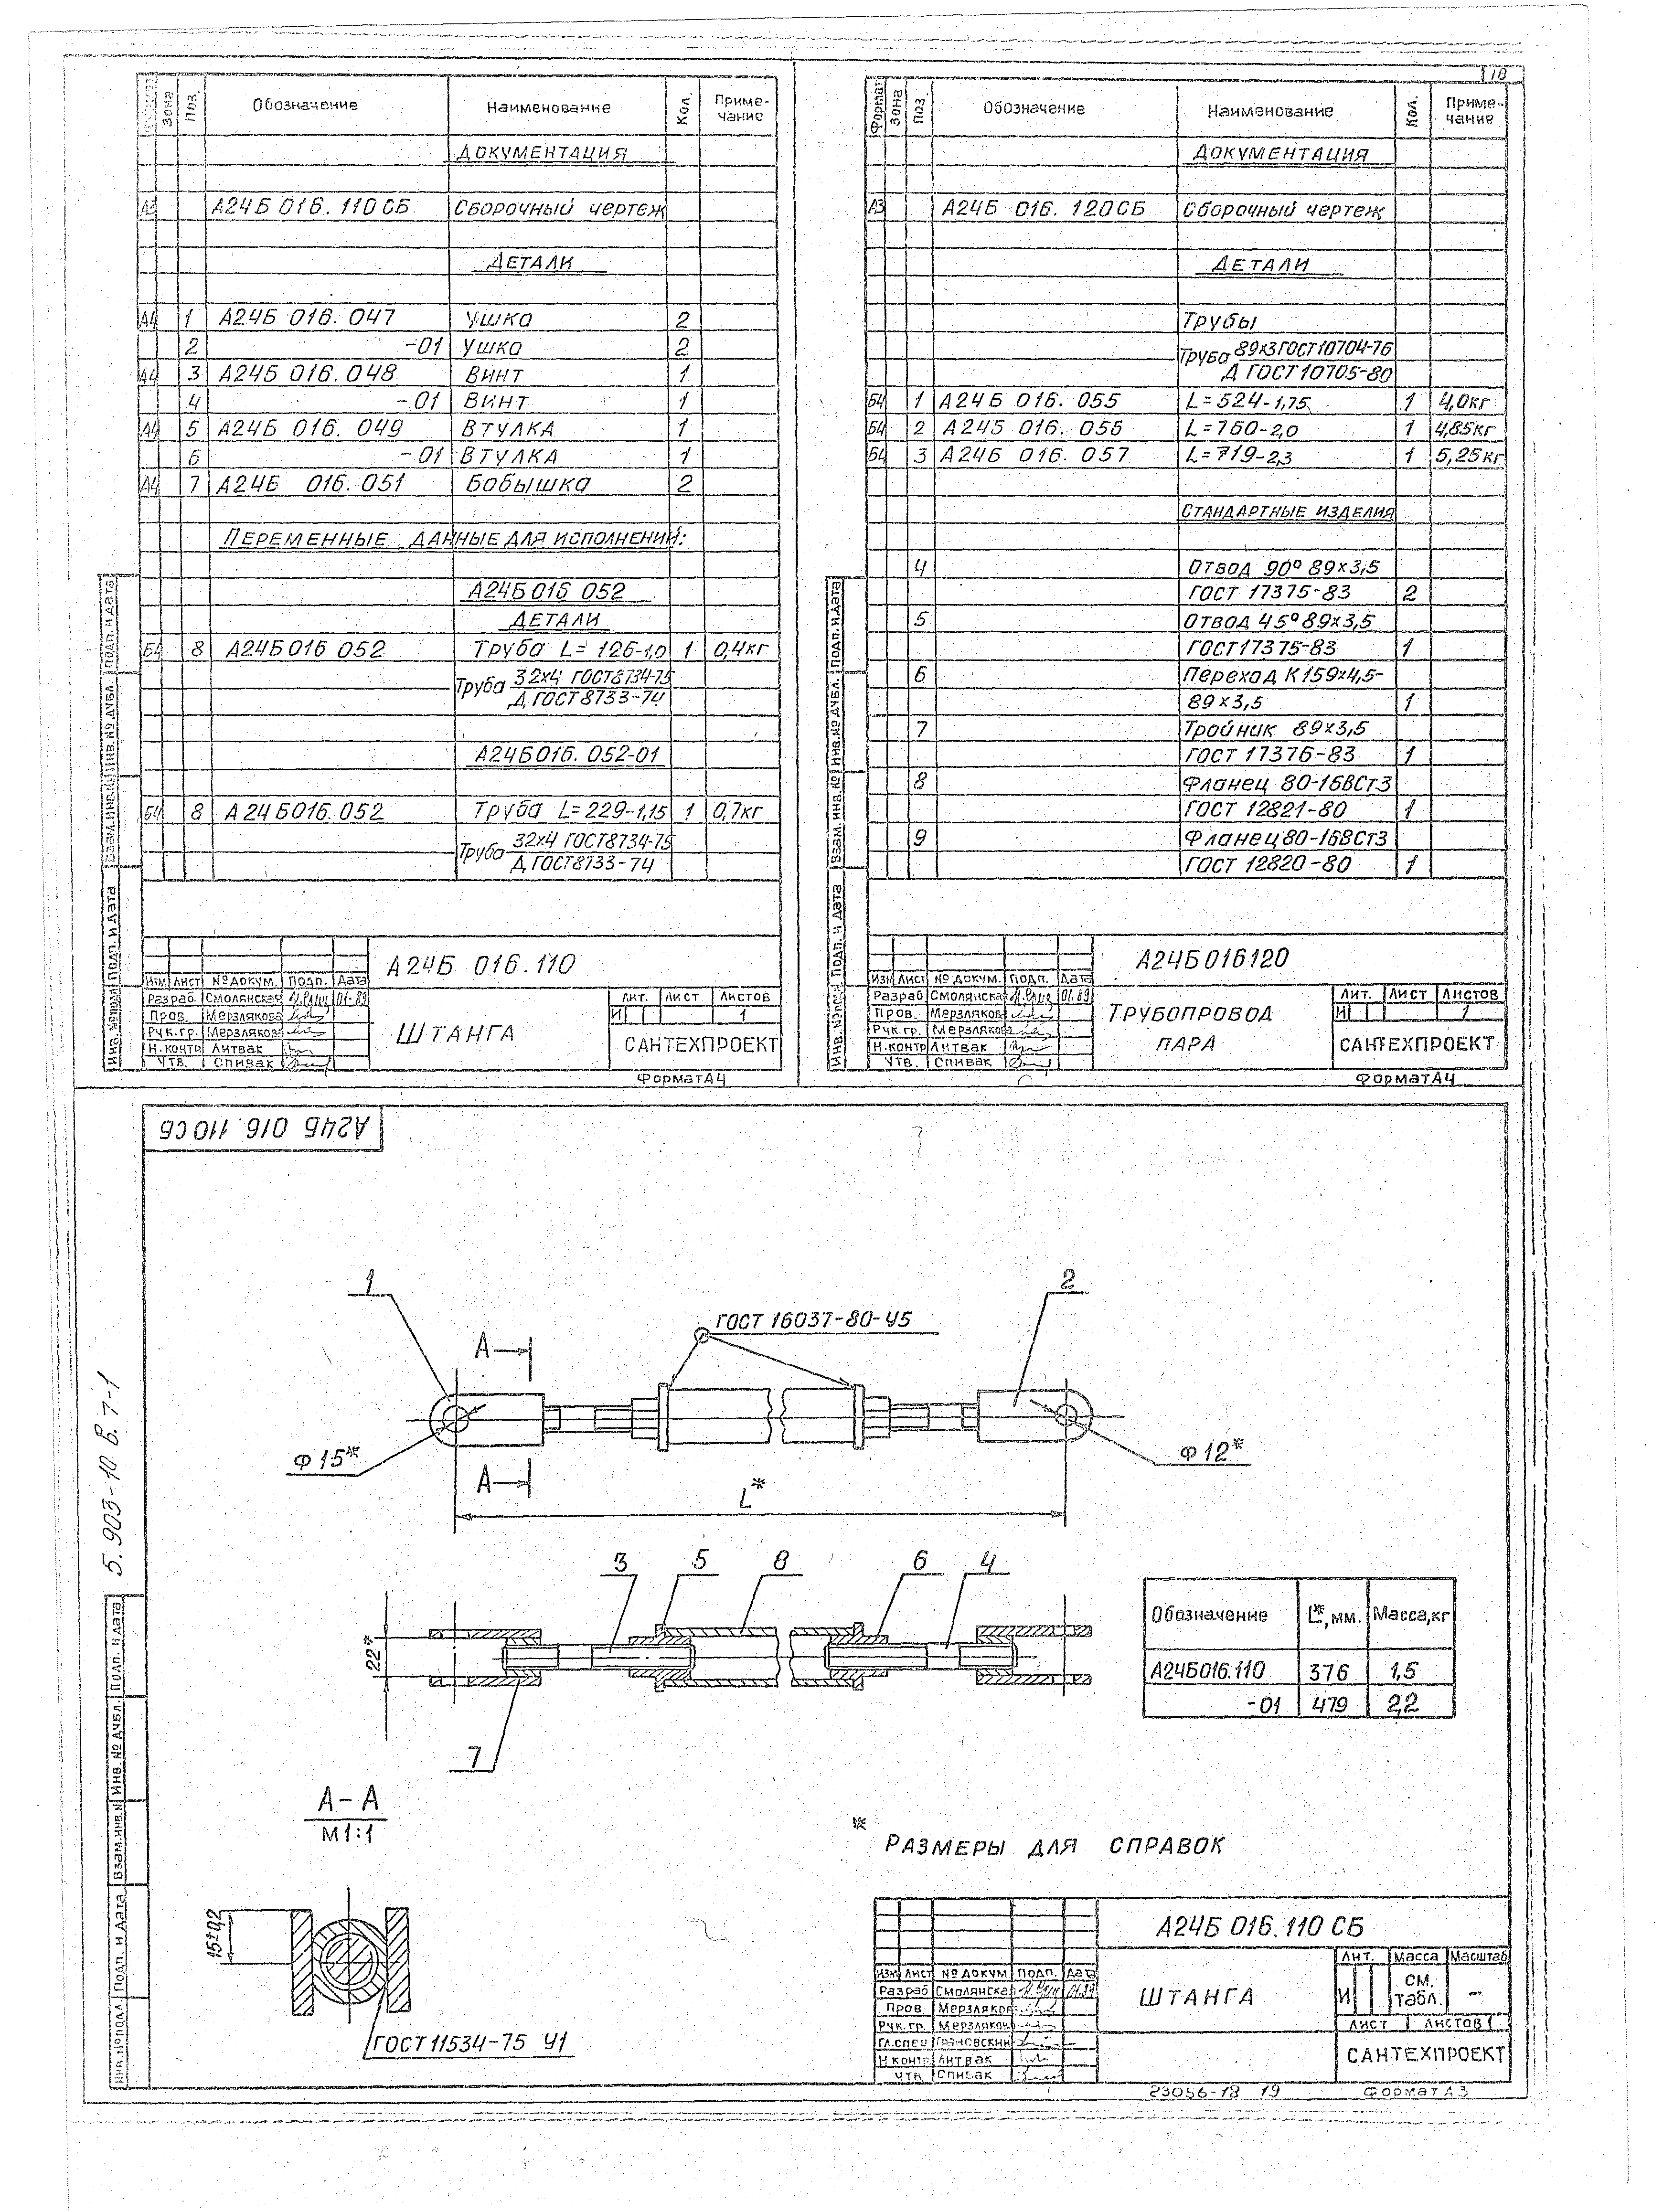 18
Зона Поз. Обозначение Наименование Кол. Приме-
чание
Документация
А3 А24Б 016. 110СБ Сборочный чертеж
Детали
А4 1 А24Б 016. 047 Ушко 2
2 -01 Ушко 2
А4 3 А24Б 016.048 Винт 1
4 -01 Винт 1
А4 5 А24Б 016. 049 Втулка 1
6 -01 Втулка 1
А4 7 А24Б 016.051 Бобышка 2
Переменные данные для исполнений:
А24Б016 052
Детали
Б4 8 А24Б016 052 Труба L= 126-1,0 1 0,4кг
Труба 32х4 ГОСТ8734-75
Д ГОСТ8733-74
А24Б016. 052-01
Б4 8 А24Б016.052 Труба L=229-1,15 1 0,7кг
Труба 32х4 ГОСТ8734-75
Д ГОСТ8733-74
А24Б 016.110
Изм Лист № докум. Подп. Дата
Разраб. Смолянская 01.89
Пров. Мерзлякова
Рук.гр. Мерзлякова
Н.контр Литвак
Утв. Спивак
Штанга
Лит. Лист Листов
И 1
САНТЕХПРОЕКТ
Формат А4
Инв.№подл Подп. и дата Взам.инв.№ Инв.№ дубл. Подп. и дата
Формат Зона Поз. Обозначение Наименование Кол. Приме-
чание
Документация
А3 А24Б 016. 120СБ Сборочный чертеж
Детали
Трубы
Труба 89х3ГОСТ10704-76
Д ГОСТ10705-80
Б4 1 А24Б 016. 055 L=524-1,75 1 4,0кг
Б4 2 А24Б 016. 056 L=760-2,0 1 4,85кг
Б4 3 А24Б 016. 057 L=719-2,3 1 5,25кг
Стандартные изделия
4 Отвод 90° 89х3,5
ГОСТ 17375-83 2
5 Отвод 45° 89х3,5
ГОСТ17375-83 1
6 Переход К159х4,5-
89х3,5 1
7 Тройник 89х3,5
ГОСТ 17376-83 1
8 Фланец 80-16ВСт3
ГОСТ 12821-80 1
9 Фланец 80-16ВСт3
ГОСТ 12820-80 1
А24Б016120
Изм Лист № докум. Подп. Дата
Разраб Смолянская 01.89
Пров. Мерзлякова
Рук.гр. Мерзлякова
Н.контр Литвак
Утв. Спивак
Трубопровод
пара
Лит. Лист Листов
И 1
САНТЕХПРОЕКТ
Формат А4
Инв.№подл Подп. и дата Взам.инв.№ Инв.№ дубл. Подп. и дата
А24Б 016.110СБ
1
2
ГОСТ 16037-80-У5
А
Ф15*
Ф12*
А
L*
3 5 8 6 4
22*
7
Обозначение L*,мм. Масса,кг
А24Б016.110 376 1,5
-01 479 2,2
А-А
М1:1
15±0,2
ГОСТ11534-75 У1
* Размеры для справок
5.903-10 В.7-1
Инв.№подл. Подп. и дата Взам.инв.№ Инв.№ дубл. Подп. и дата
А24Б 016.110 СБ
Изм Лист № докум Подп. Дата
Разраб Смолянская 01.89
Пров Мерзляков
Рук.гр. Мерзляков
Гл.спец
Н контр Литвак
Утв Спивак
Штанга
Лит. Масса Масштаб
И см.
табл. -
Лист Листов 1
САНТЕХПРОЕКТ
23056-18 19 Формат А3